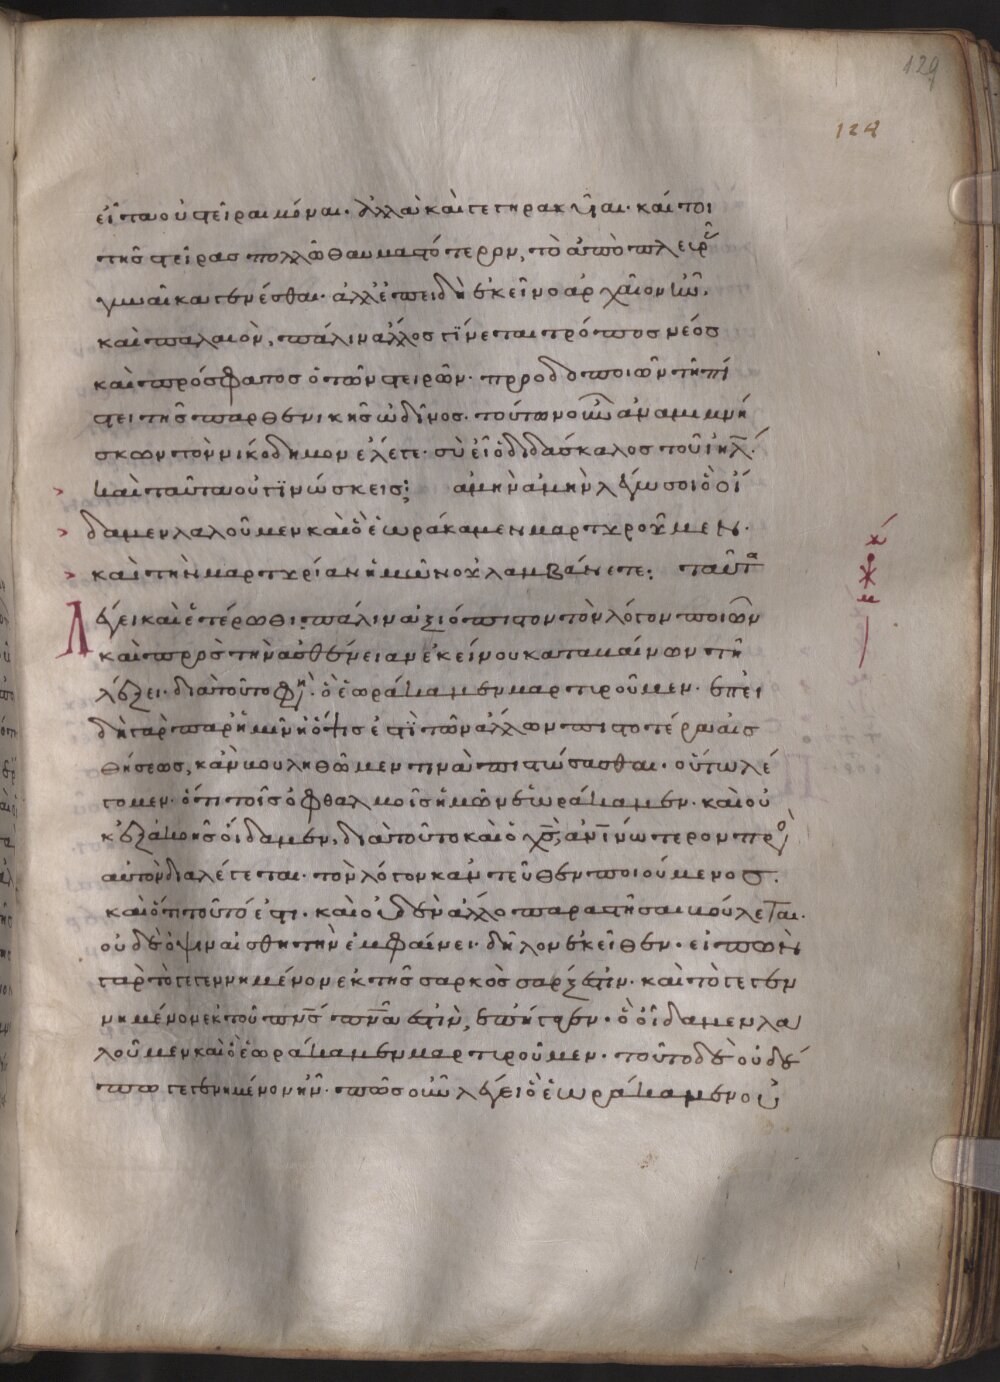 129
129
εἶτα οὐ στεῖραι μόναι· ἀλλὰ καὶ γεγηρακυῖαι· καίτοι
τῆς στείρας πολλῶ θαυμαστότερον, τὸ ἀπὸ πλευρᾶ
γυναῖκα γενέσθαι· ἀλλ' ἐπειδὴ ἐκεῖνο ἀρχαῖον ἦν.
καὶ παλαιὸν, πάλιν ἄλλος γίνεται τρόπος νέος
καὶ πρόσφατος ὁ τῶν στειρῶν· προοδοποιῶν τῆ πί
στει τῆς παρθενικῆς ὠδῖνος· τούτων οὖν ἀναμιμνή
σκων τὸν νικόδημον ἔλεγε· σὺ εἶ ὁ διδάσκαλος τοῦ ἰηλ̅·
καὶ ταῦτα οὐ γινώσκεις; ἀμὴν ἀμὴν λέγω σοι ὃ οἴ
δαμεν λαλοῦμεν καὶ ὃ ἑωράκαμεν μαρτυροῦμεν·
καὶ τὴν μαρτυρίαν ἡμῶν οὐ λαμβάνετε: ταῦτα
Λέγει καὶ ἑτέρωθι πάλιν ἀξιόπιστον τὸν λόγον ποιῶν
καὶ πρὸς τὴν ἀσθένειαν ἐκείνου καταβαίνων τῆ
λέξει· διατοῦτο φη· ὃ ἑωράκαμεν μαρτυροῦμεν· ἐπει
δὴ γὰρ παρ' ἡμῖν ἡ ὄψις ἐστὶ τῶν ἄλλων πιστοτέρα αἰσ
θήσεως, κἂν βουληθῶμεν τινὰ πιστώσασθαι· οὕτω λέ
γομεν· ὅτι τοῖς ὀφθαλμοῖς ἡμῶν ἑωράκαμεν· καὶ οὐ
κ' ἐξ ἀκοῆς οἴδαμεν, διατοῦτο καὶ ὁ χς̅, ἀν̅ινώτερον πρὸ
αὐτὸν διαλέγεται· τὸν λόγον κἀντεῦθεν ποιούμενος.
καὶ ὅτι τοῦτό ἐστι· καὶ οὐδὲν ἄλλο παραστῆσαι βούλεται.
οὐδὲ ὄψιν αἰσθητὴν ἐμφαίνει· δῆλον ἐκεῖθεν· εἰπὼν
γὰρ τὸ γεγεννημένον ἐκ τῆς σαρκὸς σαρξ ἐστὶν· καὶ τὸ γεγεν
νημένον ἐκ τοῦ πν̅ς πν̅α ἐστὶν, ἐπήγαγεν· ὃ οἴδαμεν λα
λοῦμεν καὶ ὃ ἑωράκαμεν μαρτυροῦμεν· τοῦτο δὲ οὐδέ
πω γεγενημένον ἦν· πῶς οὖν λέγει ὃ ἑωράκαμεν οὐ